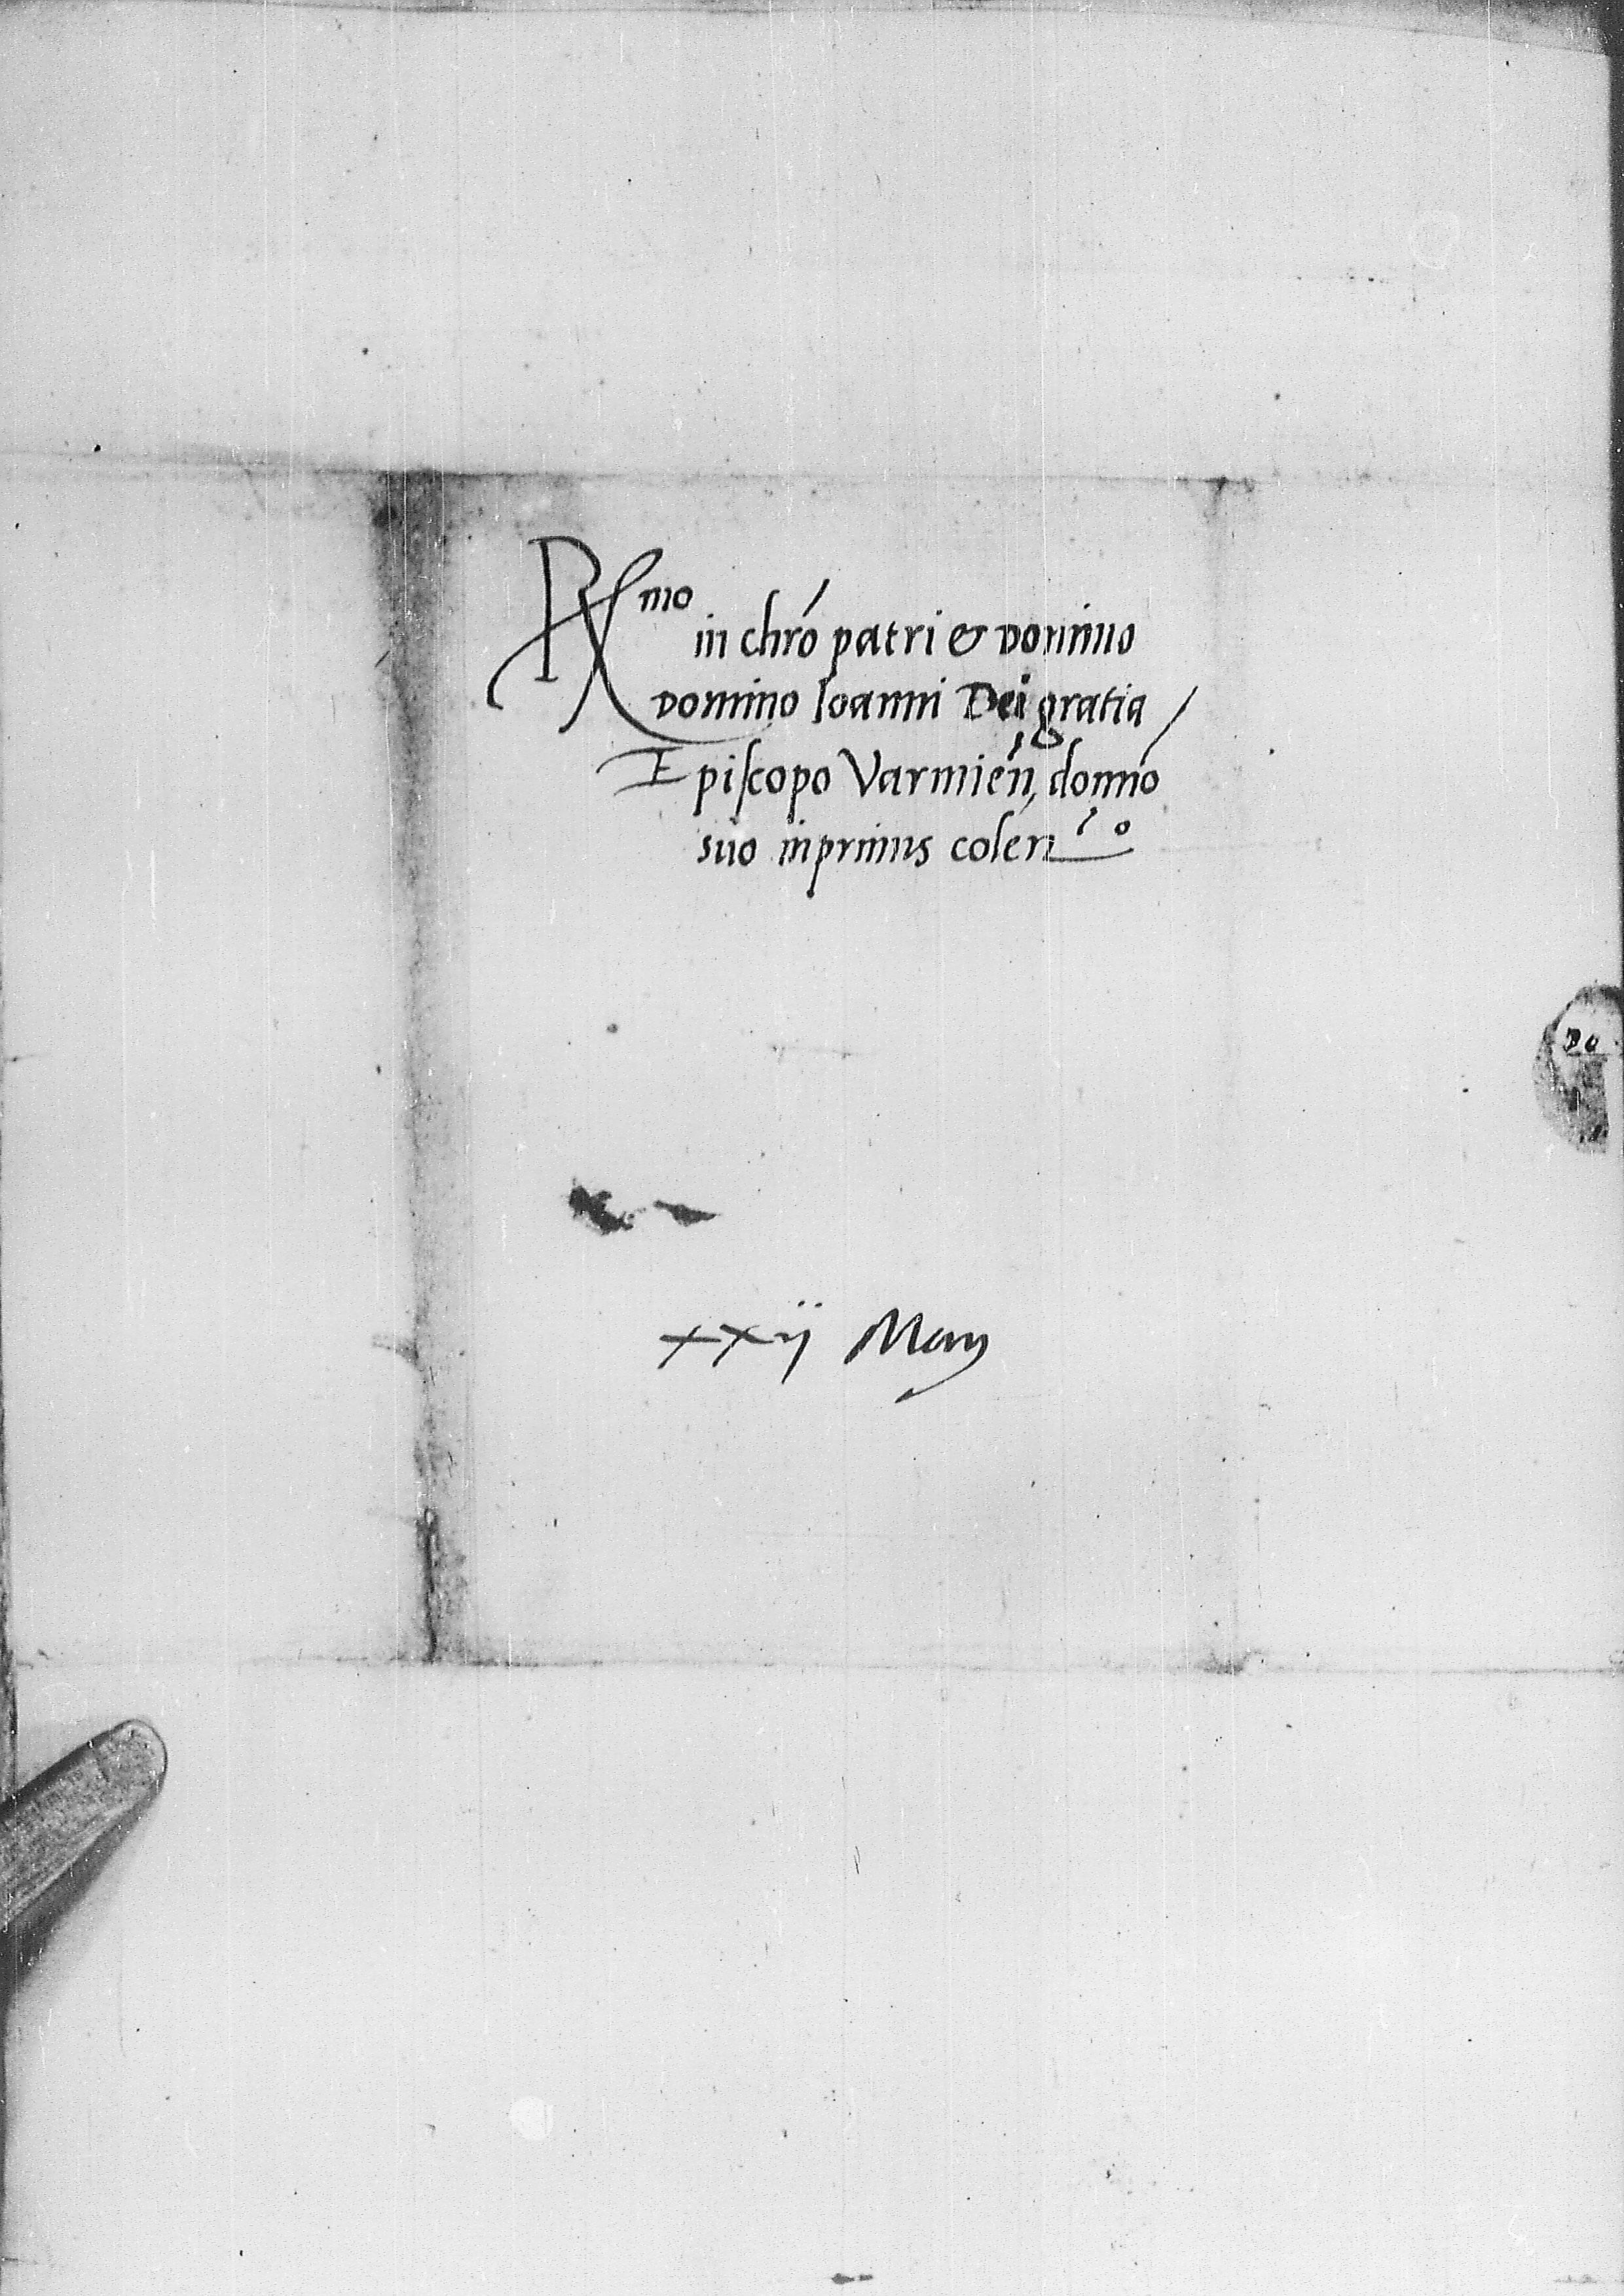 Rmo
in chro patri & domino
domino Ioanni Dei gratia
Episcopo Varmien, domno
suo inprimis coler o
xxij May
Do